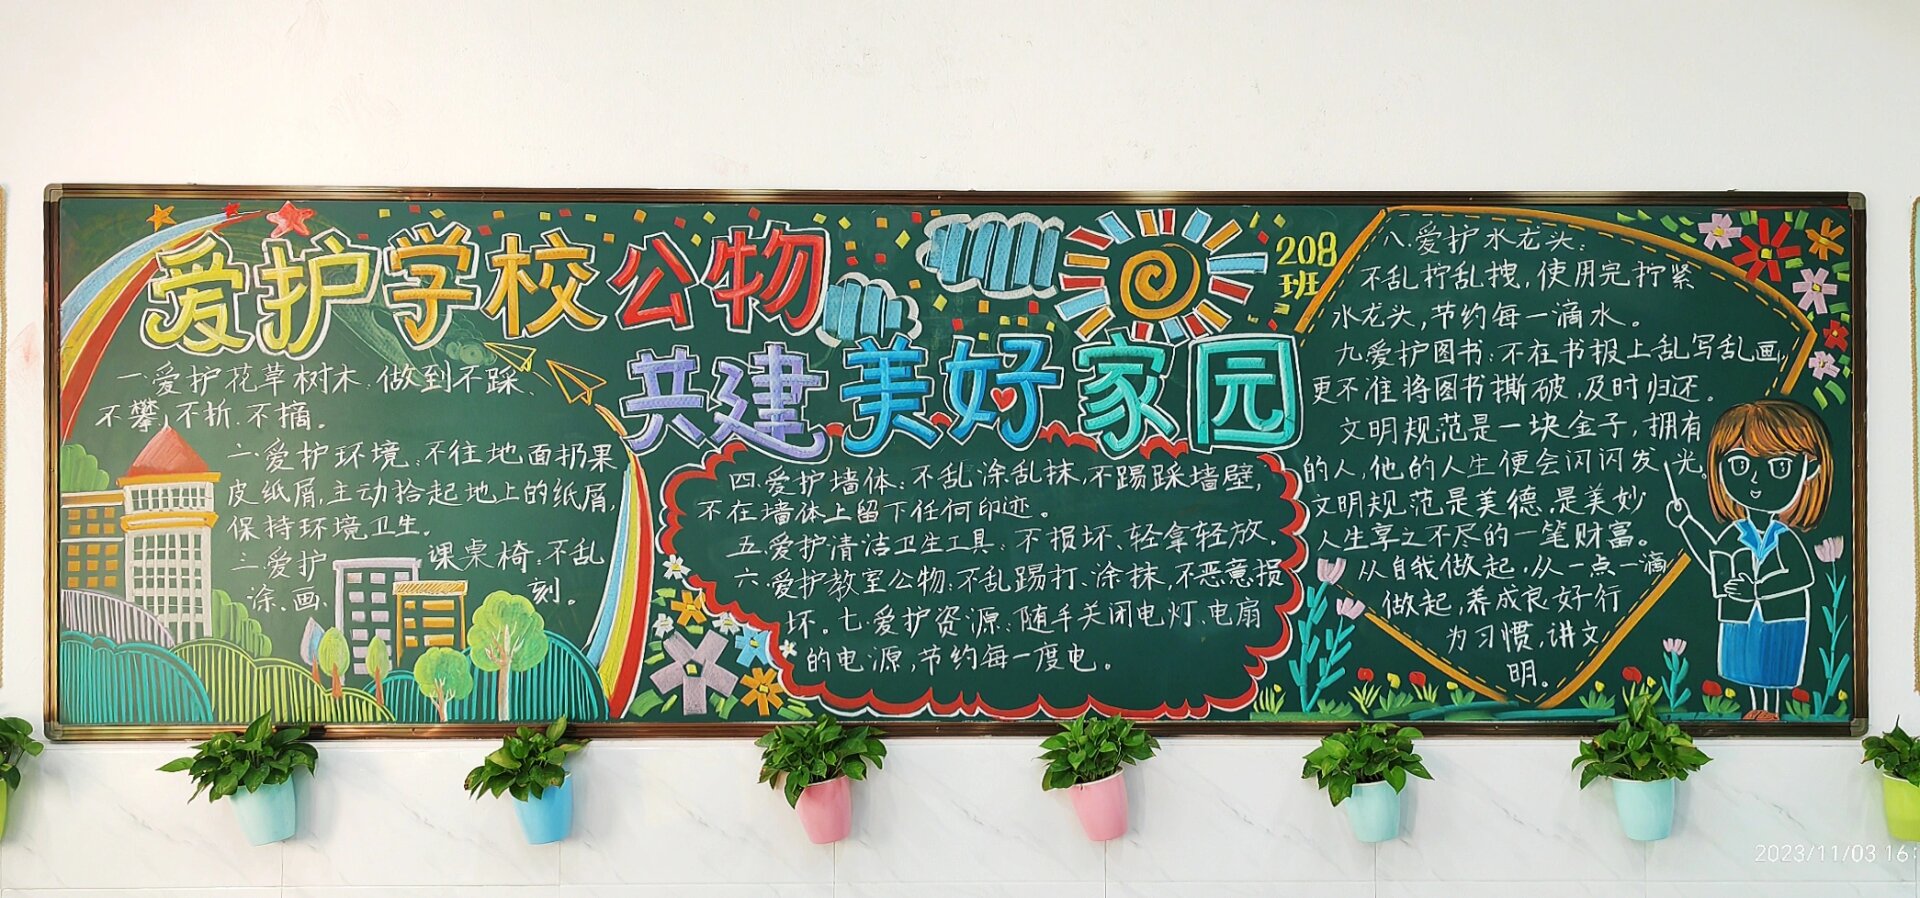 爱护学校公物
共建美好家园
208
班
一.爱护花草树木:做到不踩、
不攀、不折、不摘。
二.爱护环境:不往地面扔果
皮纸屑,主动拾起地上的纸屑,
保持环境卫生。
三.爱护 课桌椅:不乱
涂、画、 刻。
四.爱护墙体:不乱涂乱抹,不踢踩墙壁,
不在墙体上留下任何印迹。
五.爱护清洁卫生工具:不损坏、轻拿轻放。
六.爱护教室公物:不乱踢打、涂抹,不恶意损
坏。七.爱护资源:随手关闭电灯、电扇
的电源,节约每一度电。
八.爱护水龙头:
不乱拧乱拽,使用完拧紧
水龙头,节约每一滴水。
九.爱护图书:不在书报上乱写乱画
更不准将图书撕破,及时归还。
文明规范是一块金子,拥有
的人,他的人生便会闪闪发光。
文明规范是美德,是美妙
人生享之不尽的一笔财富。
从自我做起,从一点一滴
做起,养成良好行
为习惯,讲文
明。
2023/11/03 16: